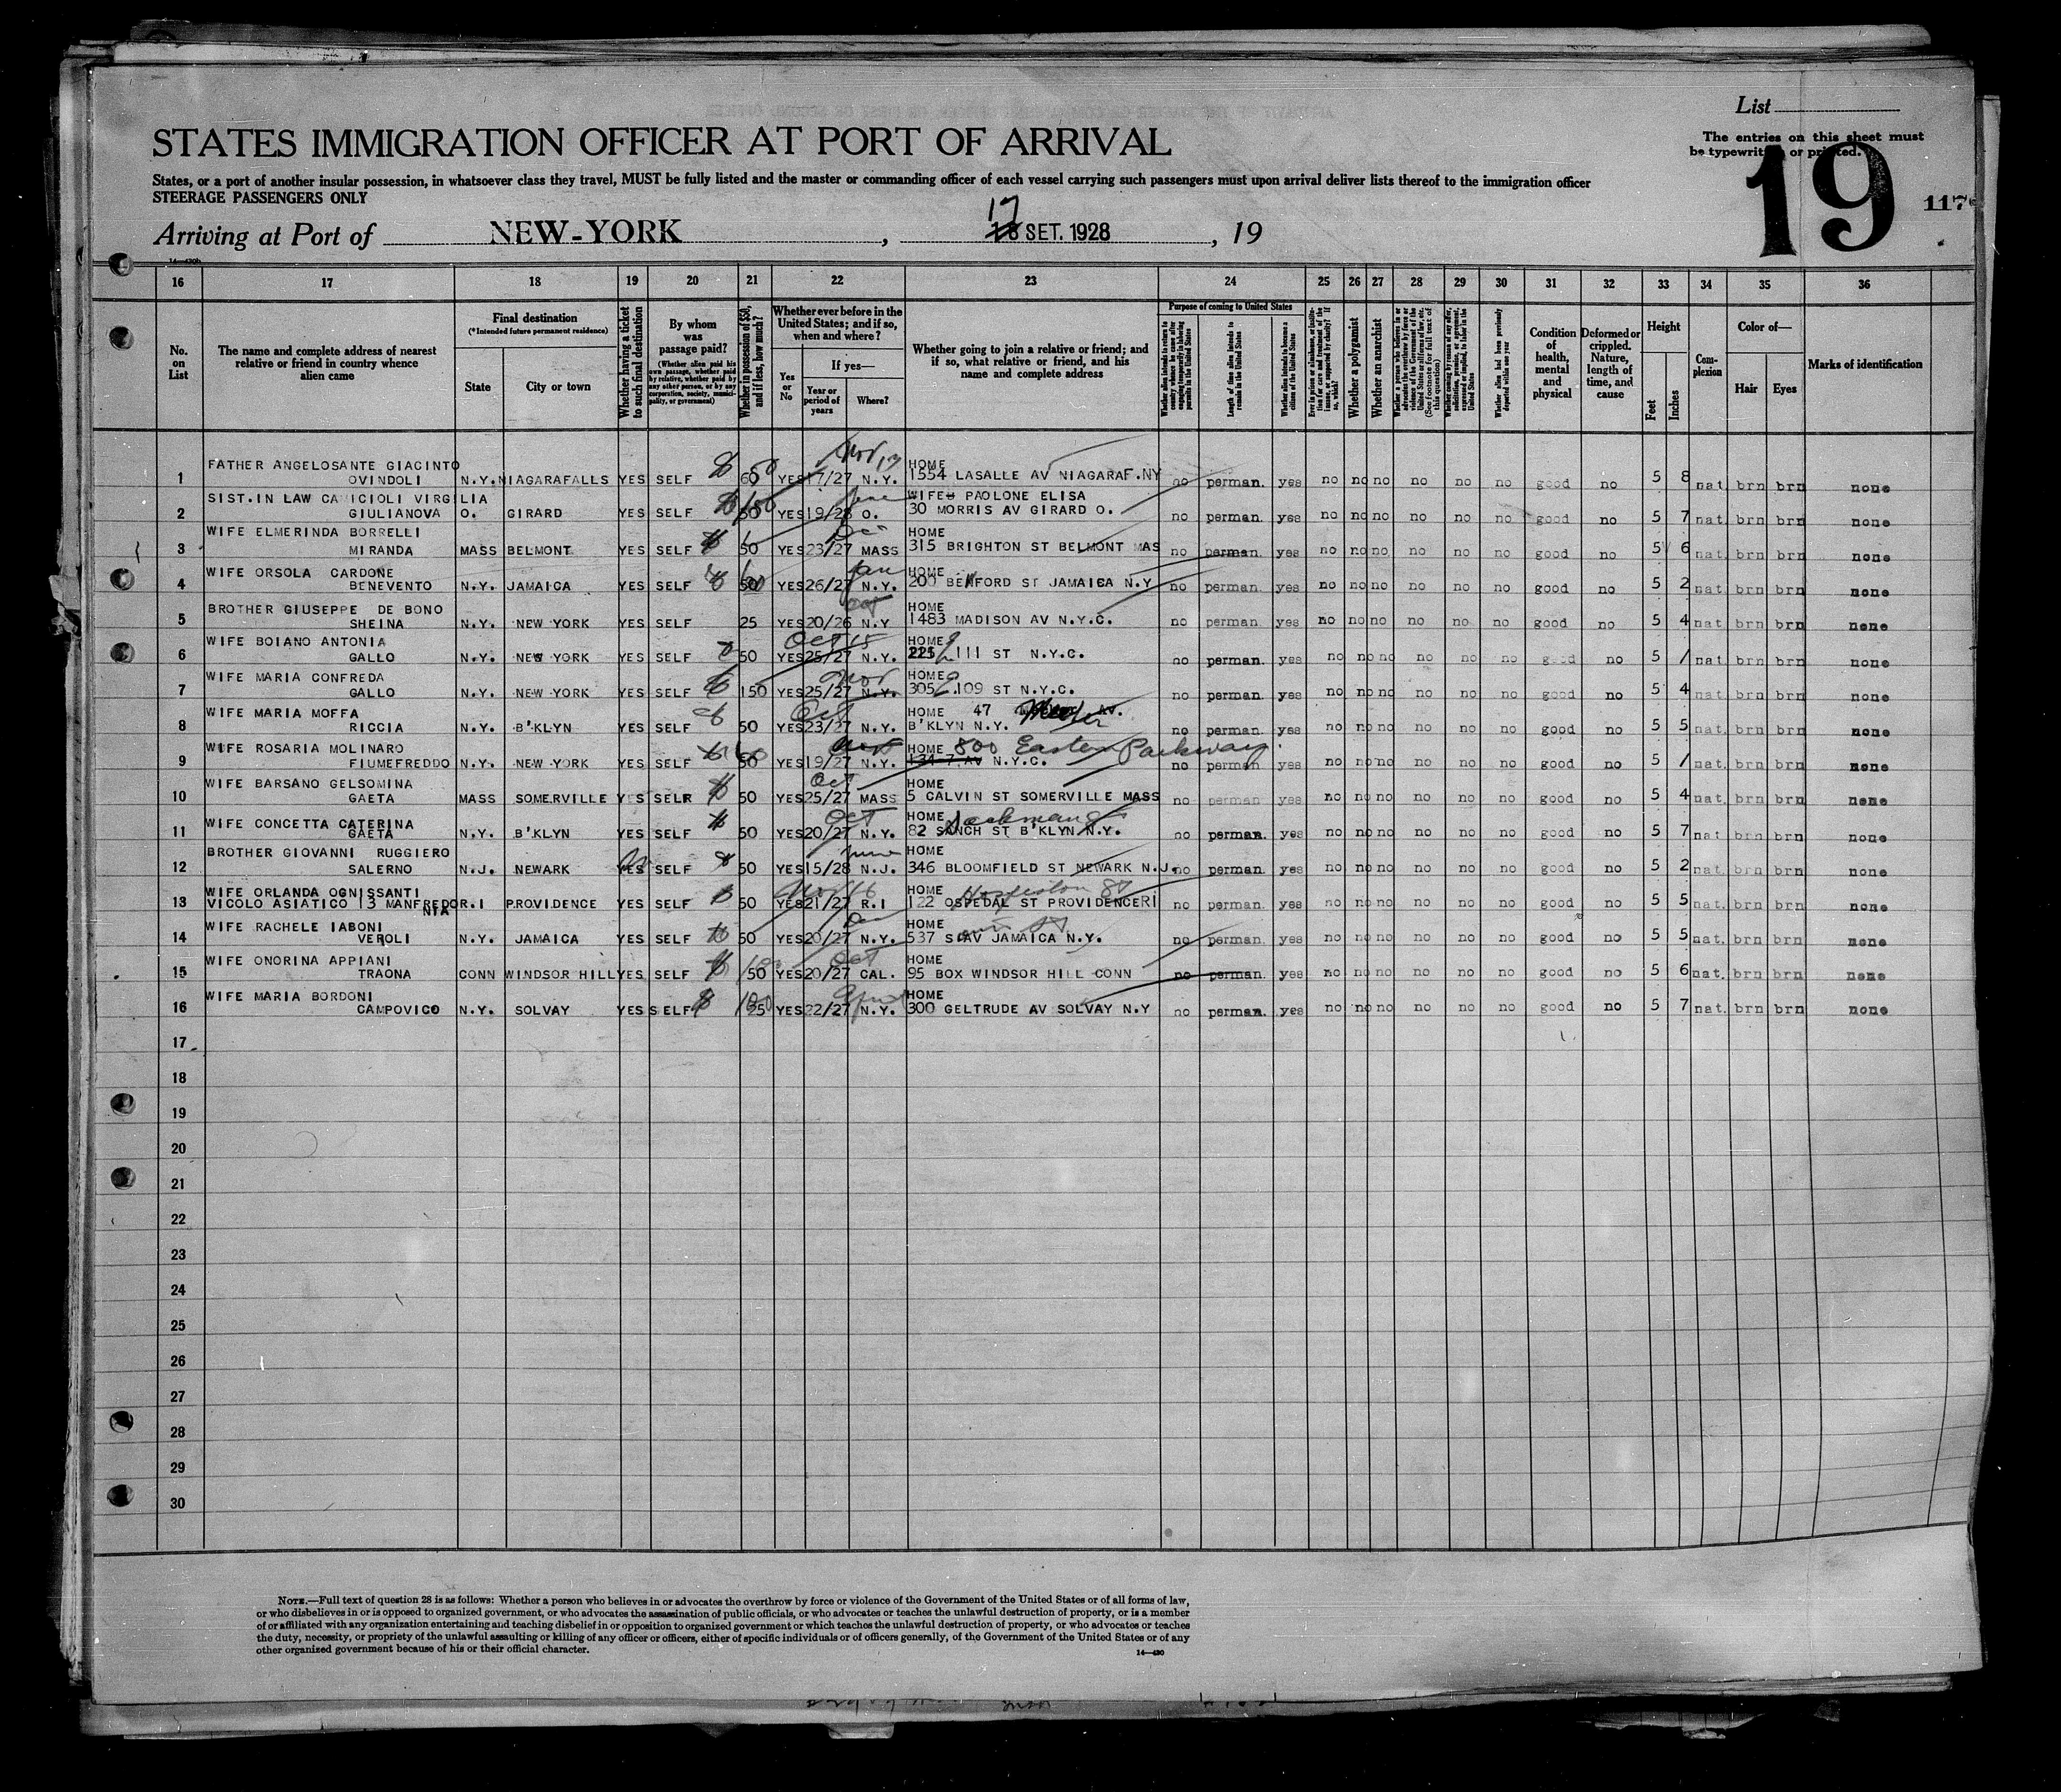 List
STATES IMMIGRATION OFFICER AT PORT OF ARRIVAL
The entries on this sheet must
be typewritten or printed.
19
117
States, or a port of another insular possession, in whatsoever class they travel, MUST be fully listed and the master or commanding officer of each vessel carrying such passengers must upon arrival deliver lists thereof to the immigration officer
STEERAGE PASSENGERS ONLY
17
Arriving at Port of NEW-YORK, 18 SET. 1928, 19
16 17 18 19 20 21 22 23 24 25 26 27 28 29 30 31 32 33 34 35 36
No. on List
The name and complete address of nearest relative or friend in country whence alien came
Final destination
(*Intended future permanent residence)
State
City or town
Whether having a ticket to such final destination
By whom was passage paid?
(Whether alien paid his own passage, whether paid by relative, whether paid by any other person, or by any corporation, society, municipality, or government)
Whether in possession of $50, and if less, how much?
Whether ever before in the United States; and if so, when and where?
Yes or No
If yes—
Year or period of years
Where?
Whether going to join a relative or friend; and if so, what relative or friend, and his name and complete address
Purpose of coming to United States
Length of time alien intends to remain in the United States
Whether alien intends to become a citizen of the United States
Whether a polygamist
Whether an anarchist
Condition of health, mental and physical
Deformed or crippled. Nature, length of time, and cause
Height
Feet
Inches
Complexion
Color of—
Hair
Eyes
Marks of identification
FATHER ANGELOSANTE GIACINTO Nov 13 HOME
1 OVINDOLI N.Y. NIAGARAFALLS YES SELF 60 50 YES 17/27 N.Y. 1554 LASALLE AV NIAGARA F.NY no perman. yes no no no no no no good no 5 8 nat. brn brn none
SIST.IN LAW CANICIOLI VIRGILIA June WIFE PAOLONE ELISA
2 GIULIANOVA O. GIRARD YES SELF 50 150 YES 19/28 O. 30 MORRIS AV GIRARD O. no perman. yes no no no no no no good no 5 7 nat. brn brn none
WIFE ELMERINDA BORRELLI Dec HOME
3 MIRANDA MASS BELMONT YES SELF 50 YES 23/27 MASS 315 BRIGHTON ST BELMONT MAS no perman. yes no no no no no no good no 5 6 nat. brn brn none
WIFE ORSOLA CARDONE Jan HOME
4 BENEVENTO N.Y. JAMAICA YES SELF 50 YES 26/27 N.Y. 200 FORD ST JAMAICA N.Y no perman. yes no no no no no no good no 5 2 nat. brn brn none
BROTHER GIUSEPPE DE BONO Oct HOME
5 SHEINA N.Y. NEW YORK YES SELF 25 YES 20/26 N.Y 1483 MADISON AV N.Y.C. no perman. yes no no no no no no good no 5 4 nat. brn brn none
WIFE BOIANO ANTONIA Oct 15 HOME
6 GALLO N.Y. NEW YORK YES SELF 50 YES 25/27 N.Y. 225 E 111 ST N.Y.C. no perman. yes no no no no no no good no 5 / nat. brn brn none
WIFE MARIA CONFREDA Nov HOME
7 GALLO N.Y. NEW YORK YES SELF 150 YES 25/27 N.Y. 305 E 109 ST N.Y.C. no perman. yes no no no no no no good no 5 4 nat. brn brn none
WIFE MARIA MOFFA Oct HOME 47 AV.
8 RICCIA N.Y. B'KLYN YES SELF 50 YES 23/27 N.Y. B'KLYN N.Y. no perman. yes no no no no no no good no 5 5 nat. brn brn none
WIFE ROSARIA MOLINARO Nov HOME 800 Eastern Parkway.
9 FIUMEFREDDO N.Y. NEW YORK YES SELF 50 YES 19/27 N.Y. 134-7 AV N.Y.C. no perman. yes no no no no no no good no 5 / nat. brn brn none
WIFE BARSANO GELSOMINA Oct HOME
10 GAETA MASS SOMERVILLE YES SELR 50 YES 25/27 MASS 5 CALVIN ST SOMERVILLE MASS no perman. yes no no no no no no good no 5 4 nat. brn brn none
WIFE CONCETTA CATERINA Oct HOME Sackman
11 GAETA N.Y. B'KLYN YES SELF 50 YES 20/27 N.Y. 82 SANCH ST B'KLYN N.Y. no perman. yes no no no no no no good no 5 7 nat. brn brn none
BROTHER GIOVANNI RUGGIERO June HOME
12 SALERNO N.J. NEWARK YES SELF 50 YES 15/28 N.J. 346 BLOOMFIELD ST NEWARK N.J. no perman. yes no no no no no no good no 5 2 nat. brn brn none
WIFE ORLANDA OGNISSANTI Nov 16 HOME
13 VICOLO ASIATICO 13 MANFREDONIA R.I PROVIDENCE YES SELF 50 YES 21/27 R.I 122 OSPEDAL ST PROVIDENCERI no perman. yes no no no no no no good no 5 5 nat. brn brn none
WIFE RACHELE IABONI Dec HOME
14 VEROLI N.Y. JAMAICA YES SELF 50 YES 20/27 N.Y. 537 S AV JAMAICA N.Y. no perman. yes no no no no no no good no 5 5 nat. brn brn none
WIFE ONORINA APPIANI Oct HOME
15 TRAONA CONN WINDSOR HILL YES SELF 50 YES 20/27 CAL. 95 BOX WINDSOR HILL CONN no perman. yes no no no no no no good no 5 6 nat. brn brn none
WIFE MARIA BORDONI April HOME
16 CAMPOVICO N.Y. SOLVAY YES SELF 25 YES 22/27 N.Y. 300 GELTRUDE AV SOLVAY N.Y no perman. yes no no no no no no good no 5 7 nat. brn brn none
17
18
19
20
21
22
23
24
25
26
27
28
29
30
NOTE.—Full text of question 28 is as follows: Whether a person who believes in or advocates the overthrow by force or violence of the Government of the United States or of all forms of law,
or who disbelieves in or is opposed to organized government, or who advocates the assassination of public officials, or who advocates or teaches the unlawful destruction of property, or is a member
of or affiliated with any organization entertaining and teaching disbelief in or opposition to organized government or which teaches the unlawful destruction of property, or who advocates or teaches
the duty, necessity, or propriety of the unlawful assaulting or killing of any officer or officers, either of specific individuals or of officers generally, of the Government of the United States or of any
other organized government because of his or their official character.
14—430